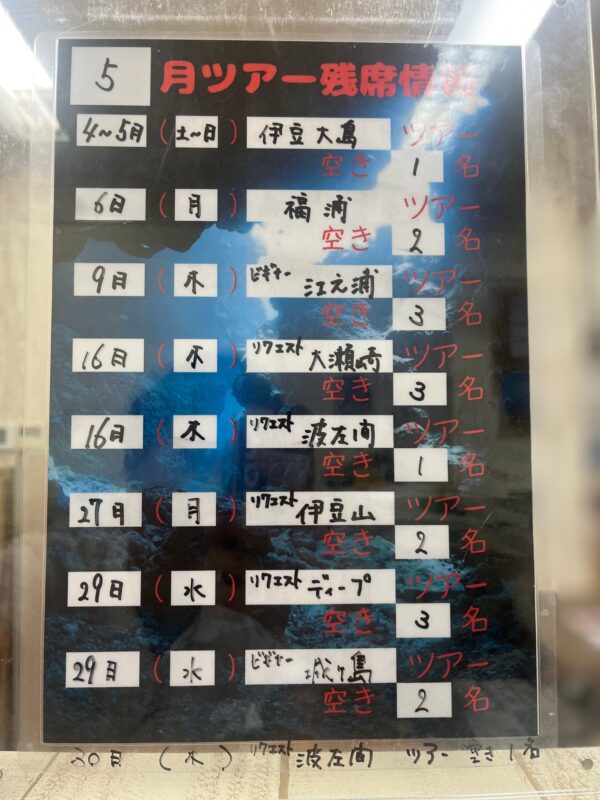 5 月ツアー残席情報
4～5日 (土～日) 伊豆大島 ツアー
空き 1 名
6日 (月) 福浦 ツアー
空き 2 名
9日 (木) ビギナー 江之浦 ツアー
空き 3 名
16日 (木) リクエスト 大瀬崎 ツアー
空き 3 名
16日 (木) リクエスト 波左間 ツアー
空き 1 名
27日 (月) リクエスト 伊豆山 ツアー
空き 2 名
29日 (水) リクエスト ディープ ツアー
空き 3 名
29日 (水) ビギナー 城ヶ島 ツアー
空き 2 名
30日 (木) リクエスト 波左間 ツアー 空き 1名